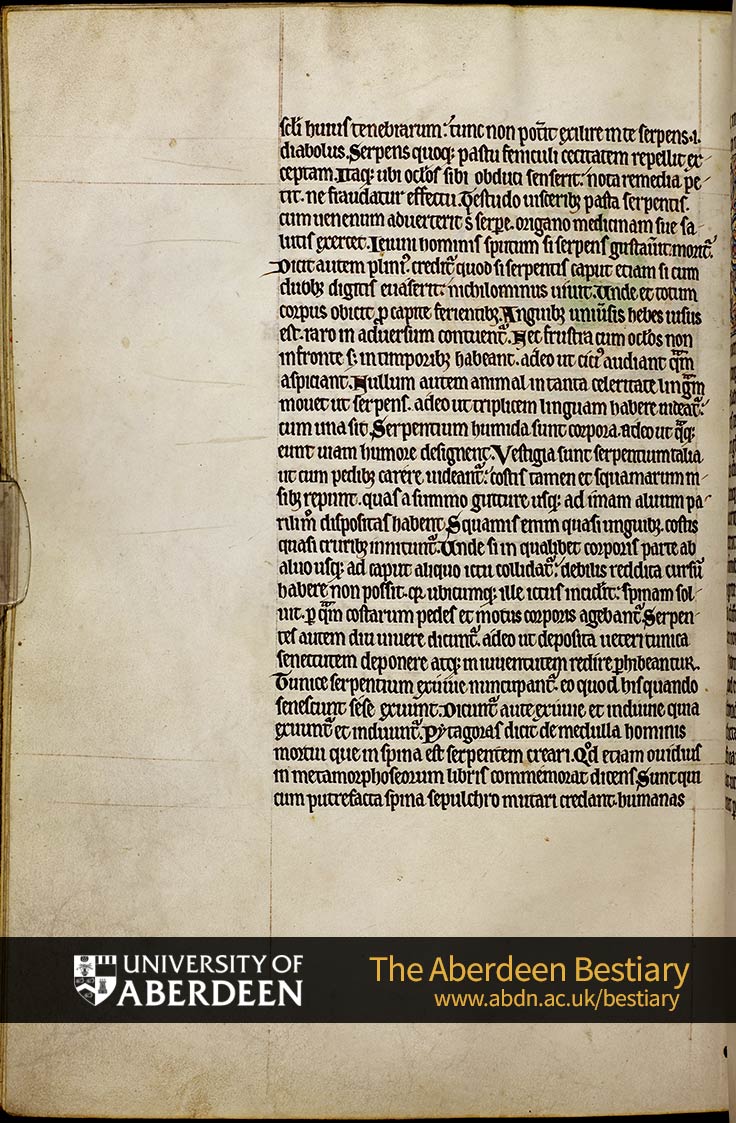 scłi huius tenebrarum: tunc non pot̄it exilire in te serpens .i.
diabolus. Serpens quoq; pastu feniculi cecitatem repellit ex
ceptam. Itaq; ubi oclo̅s sibi obduci senserit: nota remedia pe
tit. ne fraudatur effectu. Testudo uisceribȝ pasta serpentis.
cum uenenum aduerterit s̅ serpe. origano medicinam sue sa
lutis exercet. Ieiuni hominis sputum si serpens gustau̅it. morit᷑.
Dicit autem plini᷒. credit᷑ quod si serpentis caput etiam si cum
duobȝ digitis euaserit: nichilominus uiuit. Unde et totum
corpus obicit ꝓ capite ferientibȝ. Anguibȝ uniu̅sis hebes uisus
est. raro in aduersum contuent᷑. Nec frustra cum oclo̅s non
in fronte s: in timporibȝ habeant. adeo ut citi᷒ audiant qͣm
aspiciant. Nullum autem animal in tanta celeritate lingͣm
mouet ut serpens. adeo ut triplicem linguam habere uideat᷑:
cum una sit. Serpentium humida sunt corpora. adeo ut qͣq;
eunt uiam humore designent. Vestigia sunt serpentium talia
ut cum pedibȝ carere uideant᷑: costis tamen et squamarum ni
sibȝ repunt. quas a summo gutture usq; ad imam aluum pa
rilit᷑ dispositas habent. Squamis enim quasi unguibȝ. costis
quasi cruribȝ innitunt᷑. Unde si in qualibet corporis parte ab
aluo usq; ad caput aliquo ictu collidat᷑: debilis reddita cursu̅
habere non possit. qꝛ ubicumq; ille ictus incidit: spinam sol
uit. ꝑ qͣm costarum pedes et motus corporis agebant᷑. Serpen
tes autem diu uiuere dicunt᷑. adeo ut deposita ueteri tunica
senectutem deponere atq; in iuuentutem redire ꝑhibeantur.
Tunice serpentium exuuie nuncupant᷑. eo quod his quando
senescunt sese exuunt. Dicunt᷑ aute exuuie et induuie quia
exuunt᷑ et induunt᷑. Pytagoras dicit de medulla hominis
mortui que in spina est serpentem creari. Qd̅ etiam ouidius
in metamorphoseorum libris commemorat dicens. Sunt qui
cum putrefacta spina sepulchro mutari credant. humanas
UNIVERSITY OF
ABERDEEN
The Aberdeen Bestiary
www.abdn.ac.uk/bestiary